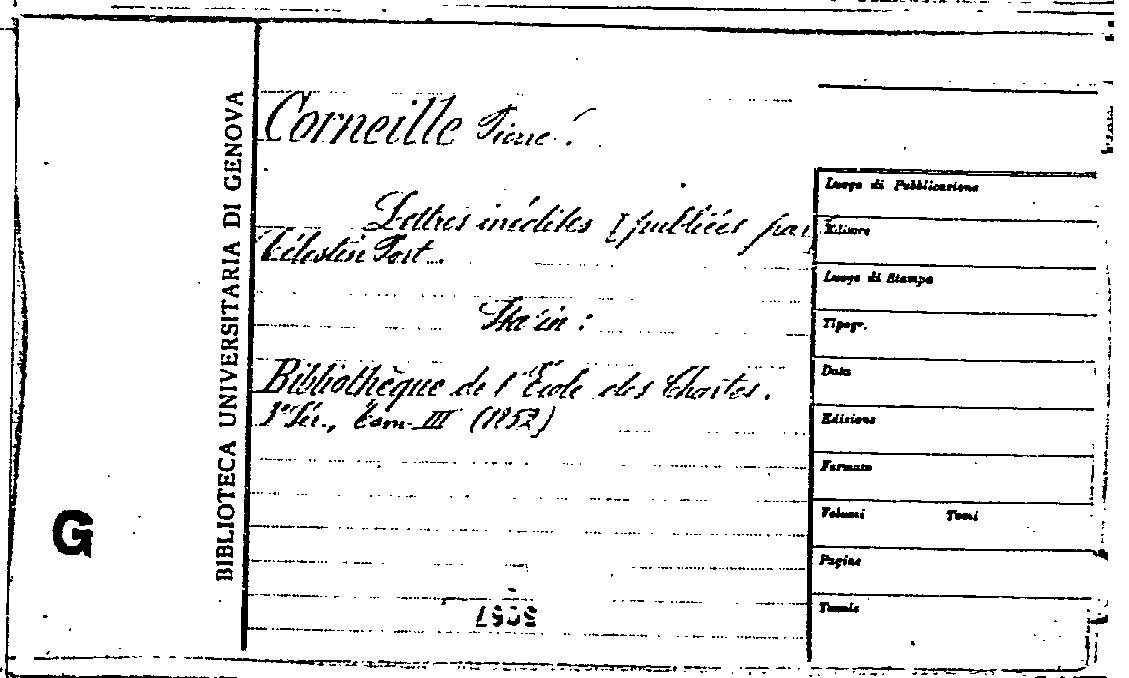 BIBLIOTECA UNIVERSITARIA DI GENOVA
G
Corneille Pierre.
Lettres inédites [publiées par
Célestin Port.
Sta in:
Bibliothèque de l'École des Chartes.
3e Sér., Tom. III (1852)
Luogo di Pubblicazione
Editore
Luogo di Stampa
Tipogr.
Data
Edizione
Formato
Volumi Tomi
Pagine